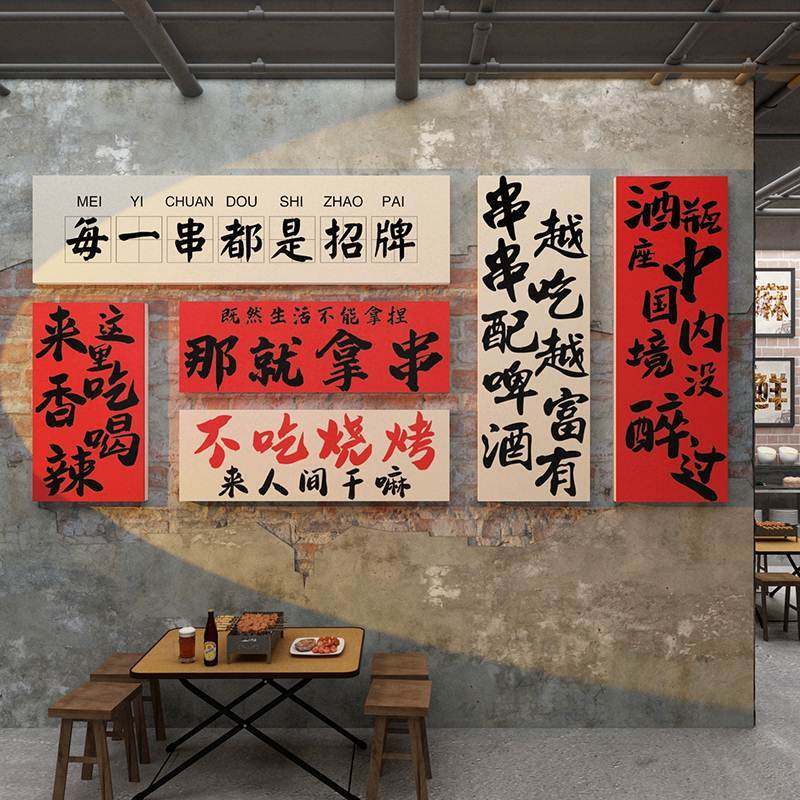 MEI YI CHUAN DOU SHI ZHAO PAI
每一串都是招牌
来这里吃香喝辣
既然生活不能拿捏
那就拿串
不吃烧烤
来人间干嘛
串串配啤酒
越吃越富有
酒瓶座中国境内没醉过